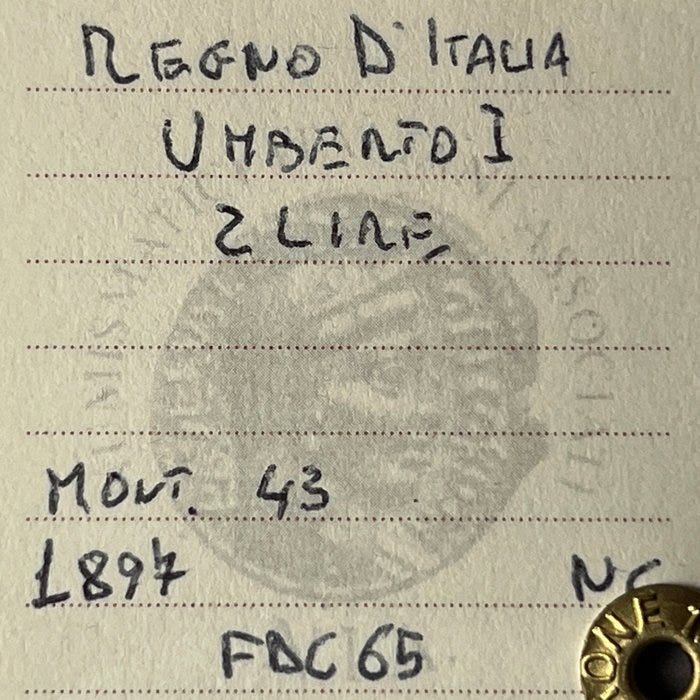 REGNO D'ITALIA
UMBERTO I
2 LIRE
MONT. 43
1897 NC
FDC 65
ONE